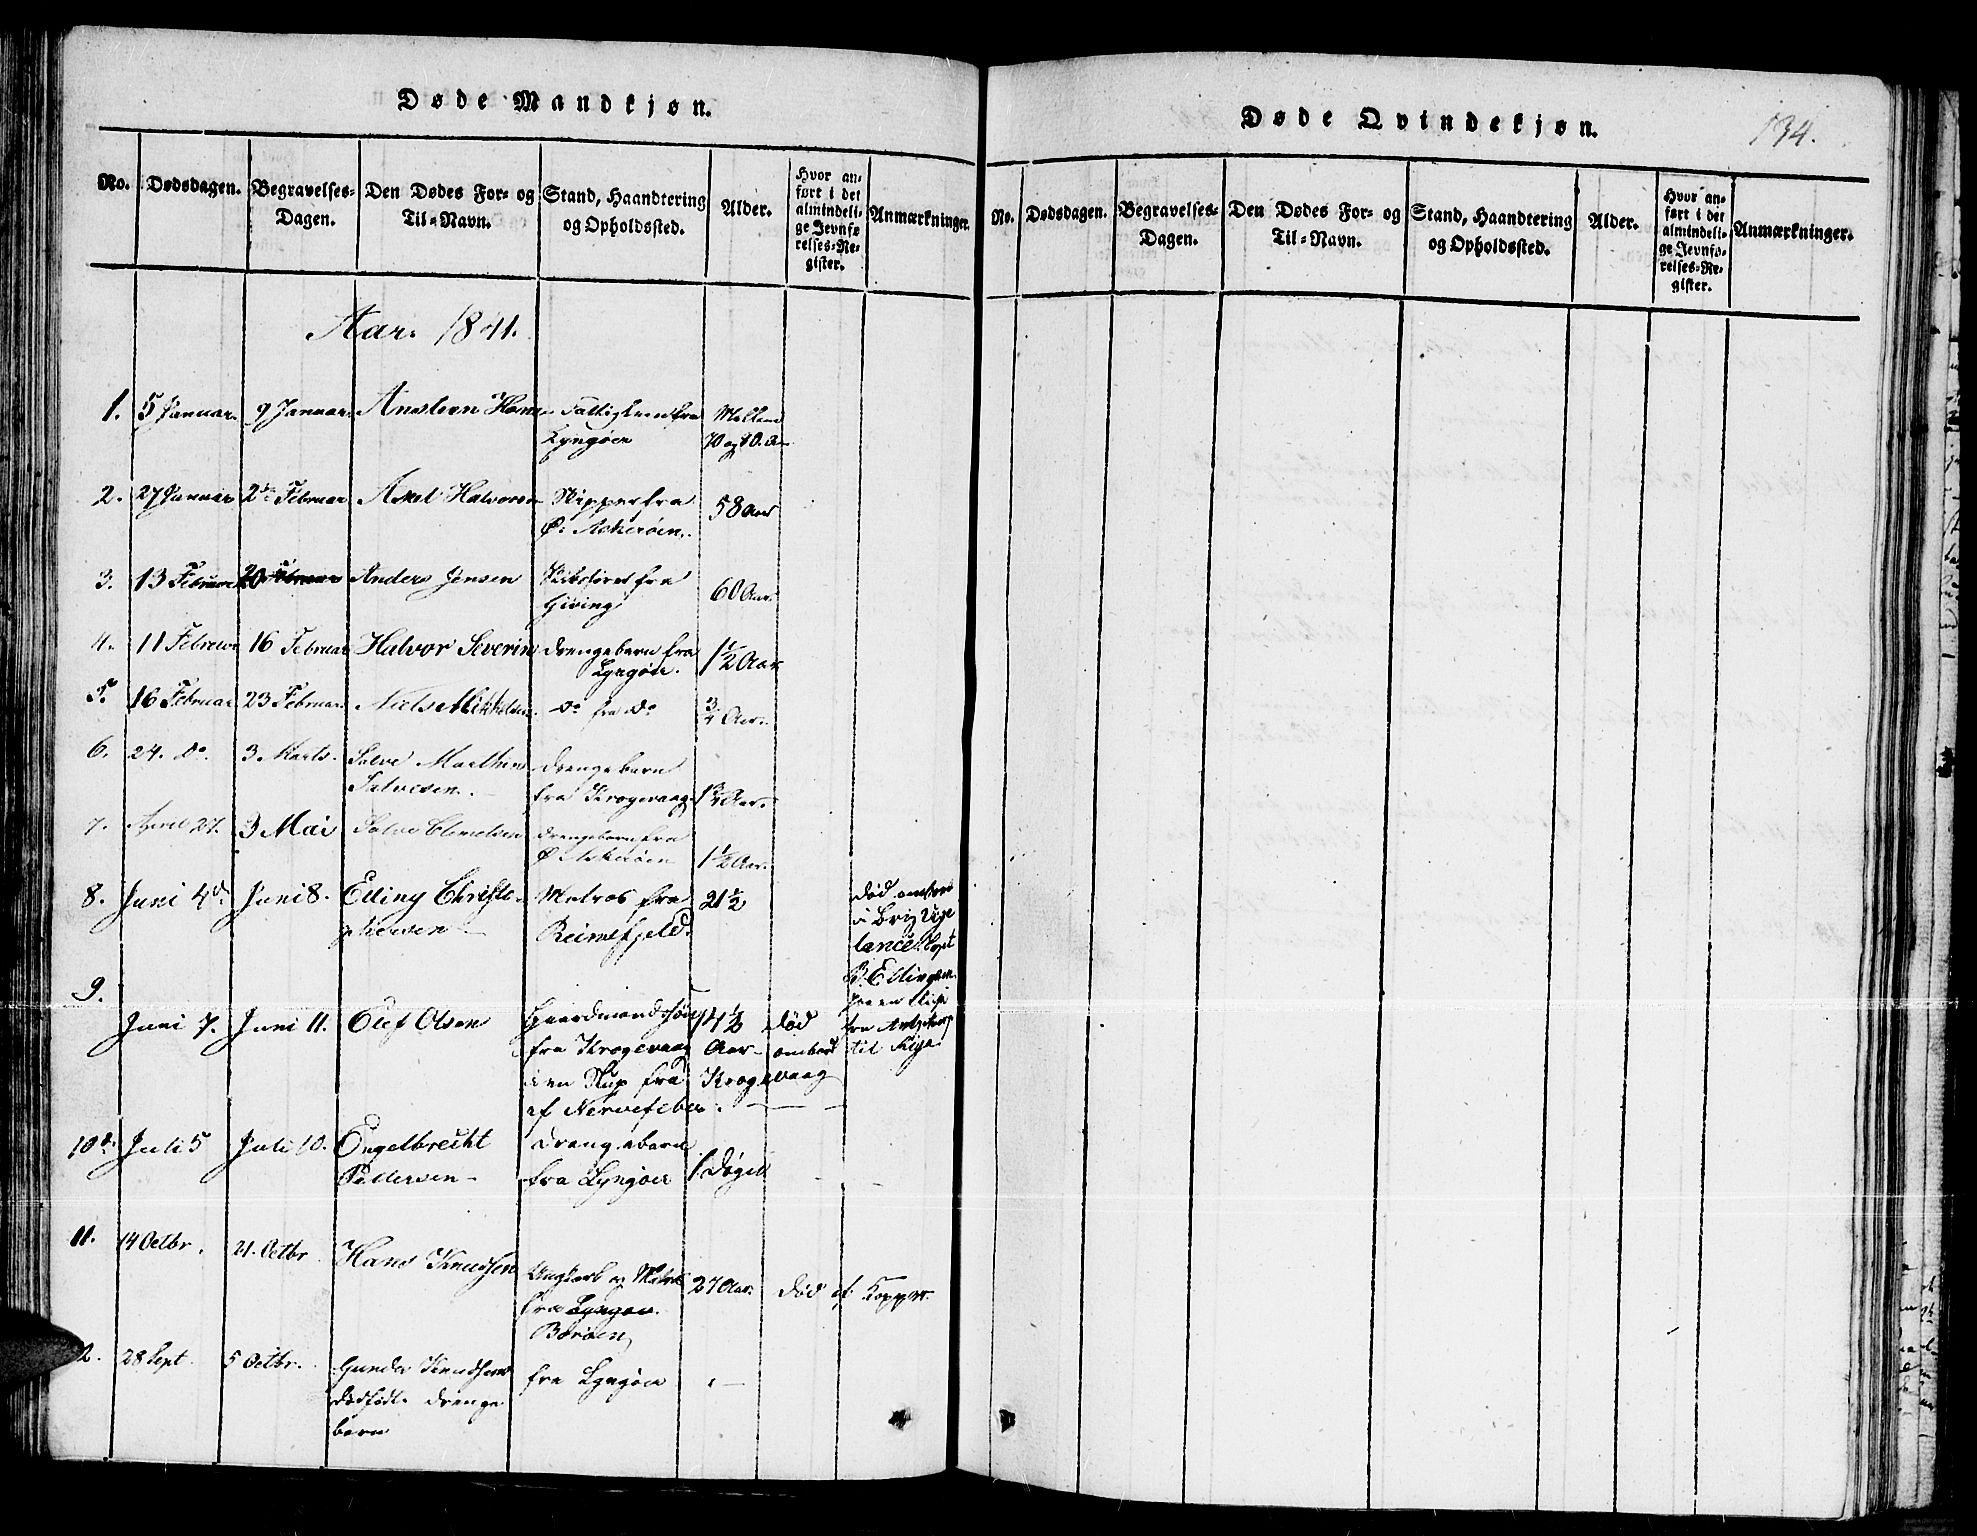 Døde Mandkjøn.
No. Dødsdagen. Begravelses-Dagen. Den Dødes For- og Til-Navn. Stand, Haandtering og Opholdssted. Alder. Hvor anført i det almindelige Jevnførelses-Register. Anmærkninger.
Aar. 1841.
1. 5 Januar. 9 Januar. Fattiglem fra Mellem
Lyngøer 70 og 80. A
2. 27 Januar 2 Februar Axel Halvorsen Skipper fra 58 Aar
Ø. Askerøen.
3. 13 Februar 20 Februar Anders Jensen fra 60 Aar.
Giving
4. 11 Februar 16 Februar Halvor Severin Drengebarn fra 1½ Aar
Lyngøer.
5. 16 Februar 23 Februar Niels Mikkelsen Do fra Do ¾ Aar.
6. 24. Do. 3 Marts. Salve Marthin Drengebarn
Salvesen. fra Krogevaag 1¾ Aar.
7. April 27. 3 Mai Salve Drengebarn fra
Ø. Askerøen 1½ Aar.
8. Juni 4de Juni 8. Elling Christo- Matros fra 21½ død ombord
phersen Reinsfjeld. i Brig Vigi
lance Capt
B. Ellingsen
9. paa en Reise
Juni 7. Juni 11. Olef Olsen Gaardmandssøn 14½ død fra
fra Krogevaag Aar ombord til Riga
i en Skup fra Krogevaag
af Nervefeber.
10de Juli 5 Juli 10. Engelbrecht Drengebarn
Pedersen fra Lyngøer 1. Døgn
11. 14 Octbr. 21. Octbr Hans Knudsen Ungkarl og Matros 27 Aar. død af Kopper.
fra Lyngøer.
Borøen
2. 28 Sept. 5 Octbr. Gunder Knudsens fra Lyngøer
dødfødte Drenge
barn
Døde Qvindekjøn.
134.
No. Dødsdagen. Begravelses-Dagen. Den Dødes For- og Til-Navn. Stand, Haandtering og Opholdssted. Alder. Hvor anført i det almindelige Jevnførelses-Register. Anmærkninger.